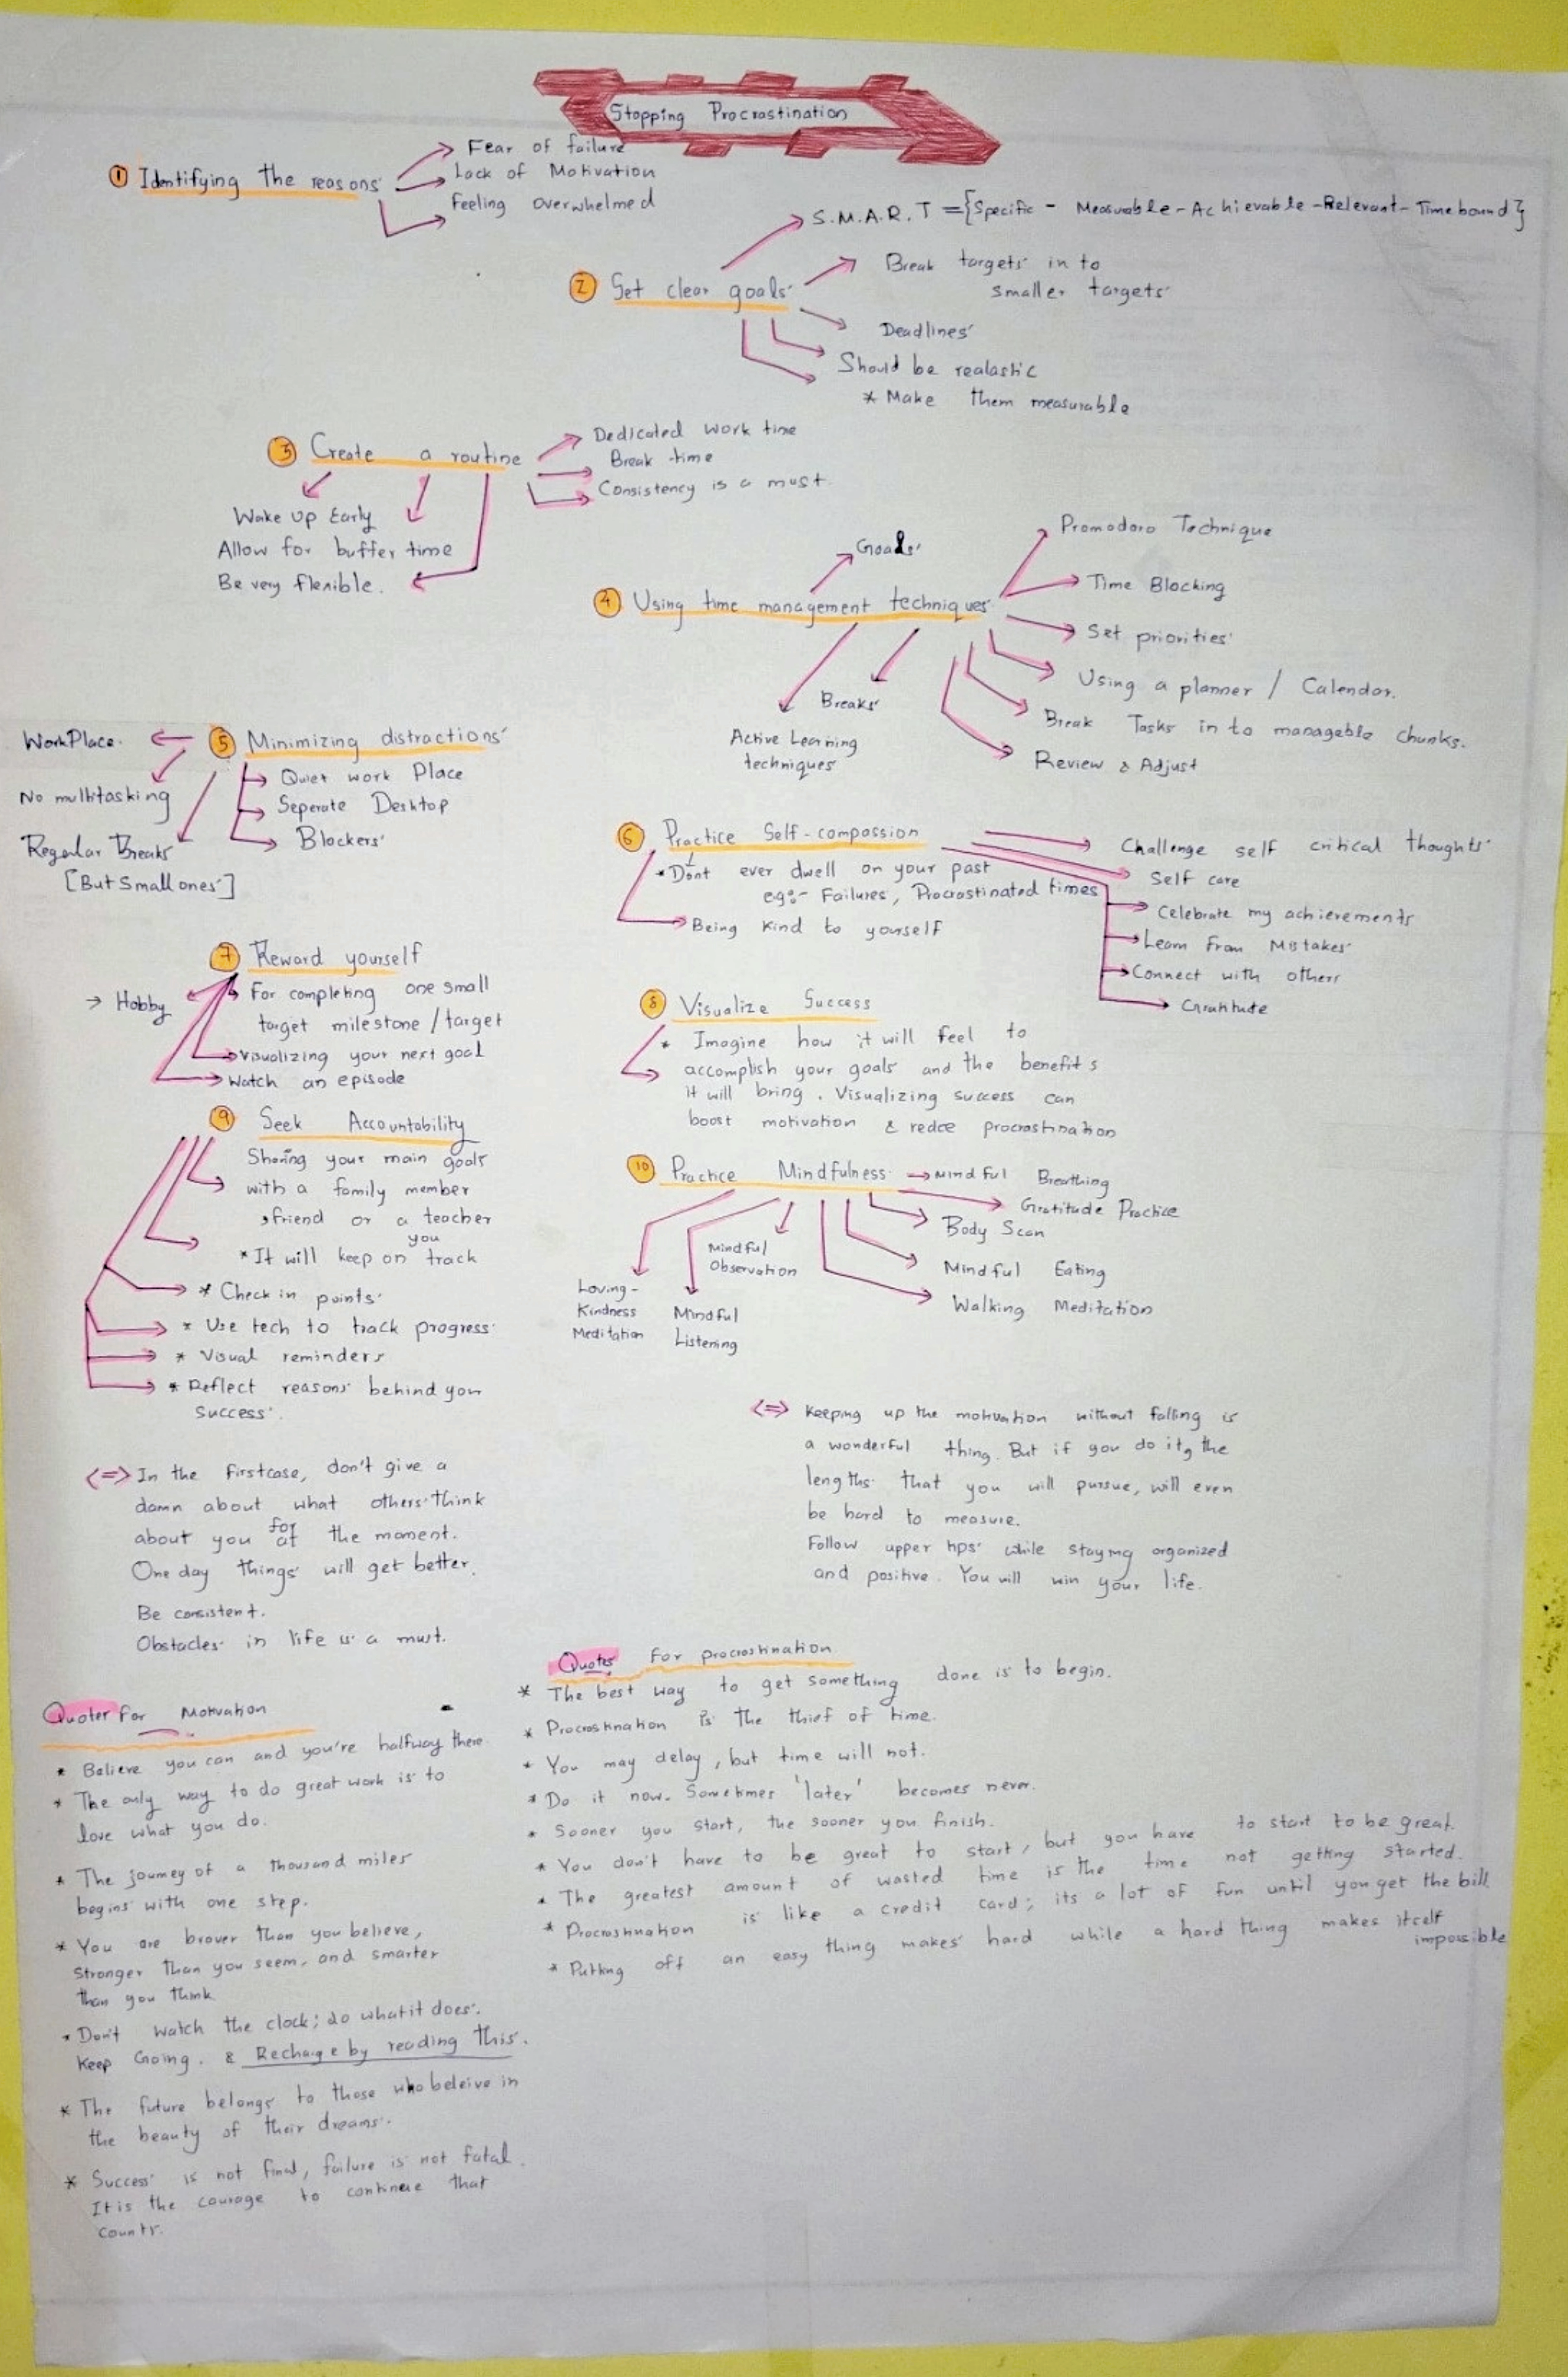 Stopping Procrastination
① Identifying the reasons
Fear of failure
Lack of Motivation
Feeling overwhelmed
② Set clear goals
S.M.A.R.T = {Specific - Measurable - Achievable - Relevant - Time bound}
Break targets in to
smaller targets
Deadlines
Should be realastic
* Make them measurable
③ Create a routine
Dedicated work time
Break time
Consistency is a must.
Wake up Early
Allow for buffer time
Be very flexible.
④ Using time management techniques
Goals
Promodoro Technique
Time Blocking
Set priorities
Using a planner / Calendar.
Break Tasks in to managable chunks.
Review & Adjust
Breaks
Active Learning
techniques
⑤ Minimizing distractions
WorkPlace.
No multitasking
Regular Breaks
[But Small ones]
Quiet work Place
Seperate Desktop
Blockers
⑥ Practice Self-compassion
* Dont ever dwell on your past
eg:- Failures, Procrastinated times
Being Kind to yourself
Challenge self critical thoughts
Self care
Celebrate my achievements
Learn from Mistakes
Connect with others
Gratitute
⑦ Reward yourself
→ Hobby
For completing one small
target milestone / target
Visualizing your next goal
Watch an episode
⑧ Visualize Success
* Imagine how it will feel to
accomplish your goals and the benefits
it will bring. Visualizing success can
boost motivation & redce procrastination
⑨ Seek Accountability
Sharing your main goals
with a family member
, friend or a teacher
* It will keep you on track
* Check in points
* Use tech to track progress
* Visual reminders
* Reflect reasons behind your
success.
⑩ Practice Mindfulness → Mindful Breathing
Gratitude Practice
Body Scan
Mindful Eating
Walking Meditation
Mindful
Observation
Mindful
Listening
Loving-
Kindness
Meditation
<=> Keeping up the motivation without falling is
a wonderful thing. But if you do it, the
lengths that you will pursue, will even
be hard to measure.
Follow upper tips while staying organized
and positive. You will win your life.
<=> In the firstcase, don't give a
damn about what others think
about you for the moment.
One day things will get better.
Be consistent.
Obstacles in life is a must.
Quotes For procrastination
* The best way to get something done is to begin.
* Procrastination is the thief of time.
* You may delay, but time will not.
* Do it now. Sometimes 'later' becomes never.
* Sooner you start, the sooner you finish.
* You don't have to be great to start, but you have to start to be great.
* The greatest amount of wasted time is the time not getting started.
* Procrastination is like a credit card; its a lot of fun until you get the bill
* Putting off an easy thing makes hard while a hard thing makes itself
impossible
Quotes for Motivation
* Believe you can and you're halfway there
* The only way to do great work is to
love what you do.
* The journey of a thousand miles
begins with one step.
* You are braver than you believe,
stronger than you seem, and smarter
than you think
* Don't watch the clock; do what it does.
Keep Going. & Recharge by reading this.
* The future belongs to those who beleive in
the beauty of their dreams.
* Success is not final, failure is not fatal.
It is the courage to continue that
counts.